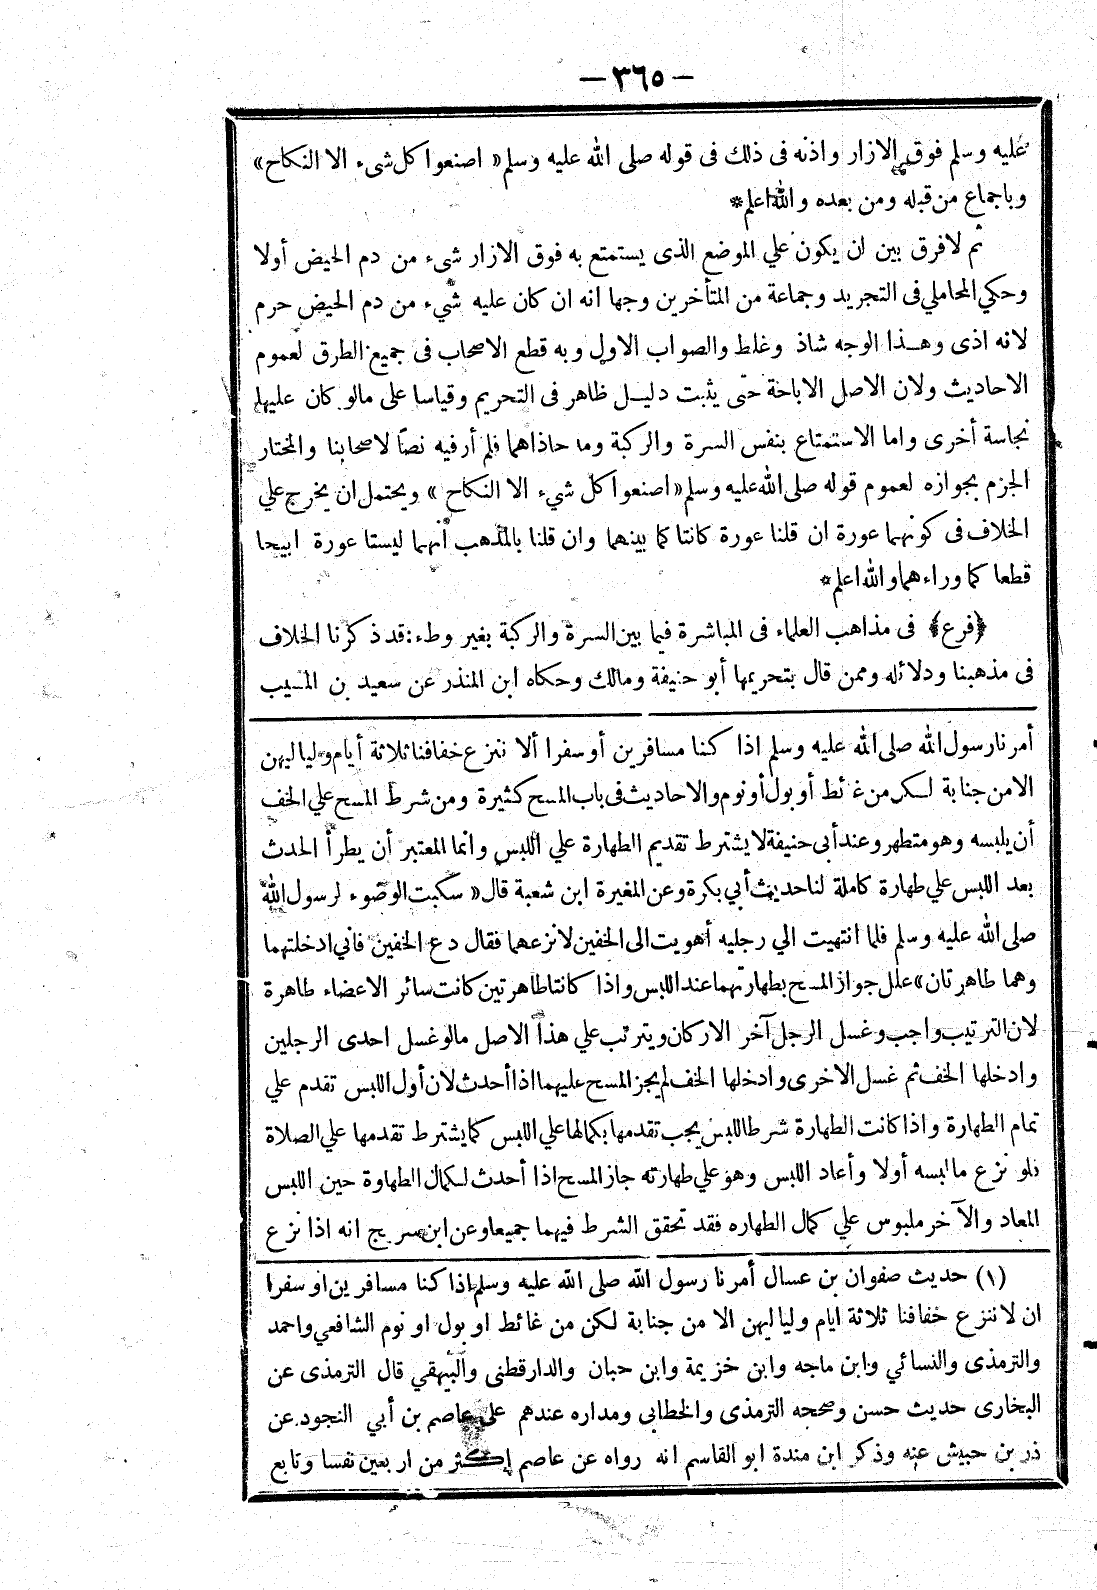 — ٣٦٥ —
عليه وسلم فوق الازار واذنه فى ذلك فى قوله صلى الله عليه وسلم « اصنعوا كل شىء الا النكاح »
وباجماع من قبله ومن بعده والله اعلم *
ثم لافرق بين ان يكون علي الموضع الذى يستمتع به فوق الازار شىء من دم الحيض أولا
وحكي المحاملي فى التجريد وجماعة من المتأخرين وجها انه ان كان عليه شيء من دم الحيض حرم
لانه اذى وهـذا الوجه شاذ وغلط والصواب الاول وبه قطع الاصحاب فى جميع الطرق لعموم
الاحاديث ولان الاصل الاباحة حتى يثبت دليـل ظاهر فى التحريم وقياسا على مالو كان عليها
نجاسة أخرى واما الاستمتاع بنفس السرة والركبة وما حاذاهما فلم أر فيه نصا لاصحابنا والمختار
الجزم بجوازه لعموم قوله صلى الله عليه وسلم « اصنعوا كل شيء الا النكاح » ويحتمل ان يخرج علي
الخلاف فى كونهما عورة ان قلنا عورة كانتا كما بينهما وان قلنا بالمذهب أنهما ليستا عورة ابيحا
قطعا كما وراءهما والله اعلم *
﴿ فرع ﴾ فى مذاهب العلماء فى المباشرة فيما بين السرة والركبة بغير وطء : قد ذكرنا الخلاف
فى مذهبنا ودلائله وممن قال بتحريمها أبو حنيفة ومالك وحكاه ابن المنذر عن سعيد بن المسيب
أمرنا رسول الله صلى الله عليه وسلم اذا كنا مسافرين أو سفرا ألا ننزع خفافنا ثلاثة أيام وليا ليهن
الا من جنابة لـكن من غائط أو بول أو نوم والاحاديث فى باب المسح كثيرة ومن شرط المسح علي الخف
أن يلبسه وهو متطهر وعند أبى حنيفة لا يشترط تقديم الطهارة علي اللبس وانما المعتبر أن يطرأ الحدث
بعد اللبس علي طهارة كاملة لنا حديث أبي بكرة وعن المغيرة ابن شعبة قال « سكبت الوضوء لرسول الله
صلى الله عليه وسلم فلما انتهيت الي رجليه أهويت الى الخفين لانزعهما فقال دع الخفين فانى ادخلتهما
وهما طاهرتان » علل جواز المسح بطهارتهما عند اللبس واذا كانتا طاهرتين كانت سائر الاعضاء طاهرة
لان الترتيب واجب وغسل الرجل آخر الاركان ويترتب علي هذا الاصل مالو غسل احدى الرجلين
وادخلها الخف ثم غسل الاخرى وادخلها الخف لم يجز المسح عليهما اذا أحدث لان أول اللبس تقدم علي
تمام الطهارة واذا كانت الطهارة شرطا للبس يجب تقدمها بكمالها علي اللبس كما يشترط تقدمها علي الصلاة
فلو نزع مالبسه أولا وأعاد اللبس وهو علي طهارته جاز المسح اذا أحدث لـكمال الطهاوة حين اللبس
المعاد والآخر ملبوس علي كمال الطهاره فقد تحقق الشرط فيهما جميعا وعن ابن سريج انه اذا نزع
(١) حديث صفوان بن عسال أمرنا رسول الله صلى الله عليه وسلم اذا كنا مسافرين او سفرا
ان لا ننزع خفافنا ثلاثة ايام وليا ليهن الا من جنابة لكن من غائط او بول او نوم الشافعي واحمد
والترمذى والنسائي وابن ماجه وابن خزيمة وابن حبان والدارقطنى والبيهقي قال الترمذى عن
البخارى حديث حسن وصححه الترمذى والخطابى ومداره عندهم على عاصم بن أبي النجود عن
ذر بن حبيش عنه وذكر ابن مندة ابو القاسم انه رواه عن عاصم اكثر من اربعين نفسا وتابع